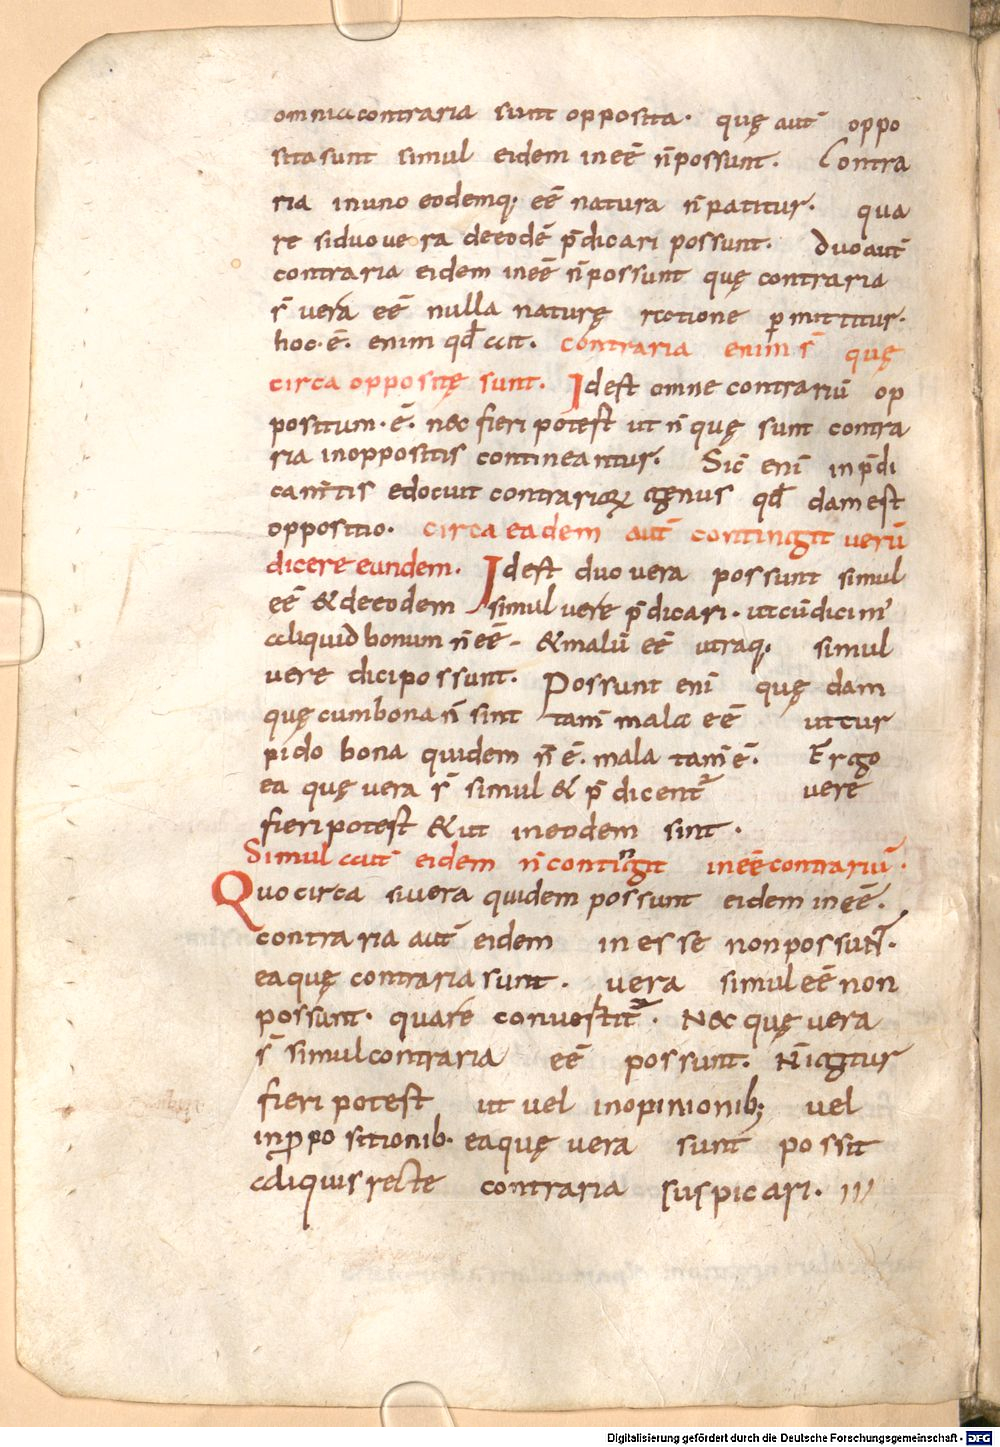 omnia contraria sunt opposita. quę aut̄ oppo
sita sunt simul eidem ineē n̄ possunt. Contra
ria in uno eodemq; eē natura n̄ patitur. qua
re si duo uera de eodē p̄dicari possunt. Duo aut̄
contraria eidem ineē n̄ possunt quę contraria
s̄ uera eē nulla naturę ratione pmittitur.
hoc.ē. enim qd̄ ait. contraria enim s̄ quę
circa oppositę sunt. Idest omne contrariū op
positum.ē. nec fieri potest ut n̄ quę sunt contra
ria in oppositis contineantur. Sic̄ eni̅ in p̄di
cam̄tis edocuit contrarioꝝ genus qd̄dam est
oppositio. circa eadem aut̄ contingit uerū
dicere eundem. Idest duo uera possunt simul
eē & de eodem simul uere p̄dicari. ut cū dicim'
aliquid bonum n̄ eē. & malū eē utraq; simul
uere dici possunt. Possunt eni̅ quędam
quę cum bona n̄ sint tam̄ mala eē ut tur
pido bona quidem n̄ ē. mala tam̄ ē. Ergo
ea quę uera s̄ simul & p̄dicent᷑ uere
fieri potest & ut in eodem sint.
Simul aut̄ eidem n̄ contingit ineē contrariū.
Quocirca si uera quidem possunt eidem ineē.
contraria aut̄ eidem inesse non possunt.
ea quę contraria sunt. uera simul eē non
possunt. quare conuertit᷑. Nec quę uera
s̄ simul contraria eē possunt. N̄ igitur
fieri potest ut uel in opinionib; uel
in ꝓpositionib. ea quę uera sunt possit
aliquis recte contraria suspicari.
Digitalisierung gefördert durch die Deutsche Forschungsgemeinschaft - DFG